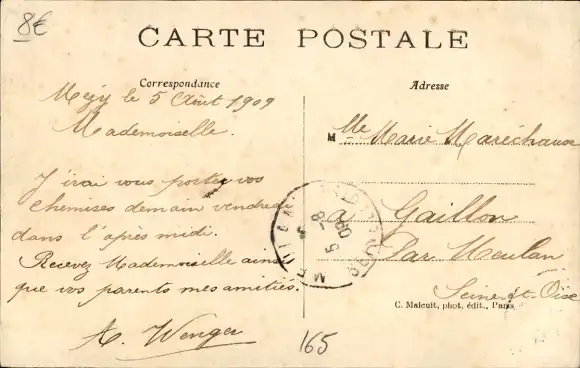 8€
CARTE POSTALE
Correspondance
Adresse
Mézy le 5 Août 1909
Mademoiselle.
J'irai vous porter vos
chemises demain vendredi
dans l'après midi.
Recevez Mademoiselle ainsi
que vos parents mes amitiés.
A. Wenger
M Mlle Marie Maréchaux
à Gaillon
Par Meulan
Seine et Oise
C. Malcuit, phot. édit., Paris
165